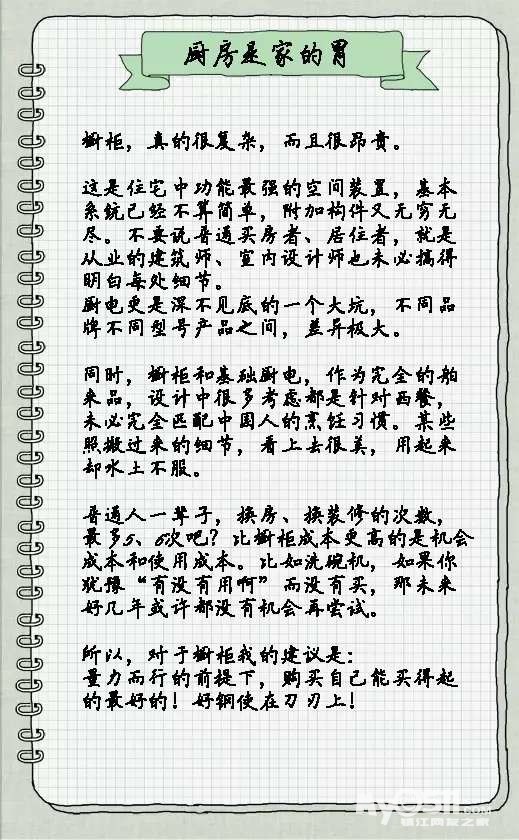 厨房是家的胃
橱柜，真的很复杂，而且很昂贵。
这是住宅中功能最强的空间装置，基本
系统已经不算简单，附加构件又无穷无
尽。不要说普通买房者、居住者，就是
从业的建筑师、室内设计师也未必搞得
明白每处细节。
厨电更是深不见底的一个大坑，不同品
牌不同型号产品之间，差异极大。
同时，橱柜和基础厨电，作为完全的舶
来品，设计中很多考虑都是针对西餐，
未必完全匹配中国人的烹饪习惯。某些
照搬过来的细节，看上去很美，用起来
却水土不服。
普通人一辈子，换房、换装修的次数，
最多5、6次吧？比橱柜成本更高的是机会
成本和使用成本。比如洗碗机，如果你
犹豫“有没有用啊”而没有买，那未来
好几年或许都没有机会再尝试。
所以，对于橱柜我的建议是：
量力而行的前提下，购买自己能买得起
的最好的！好钢使在刀刃上！